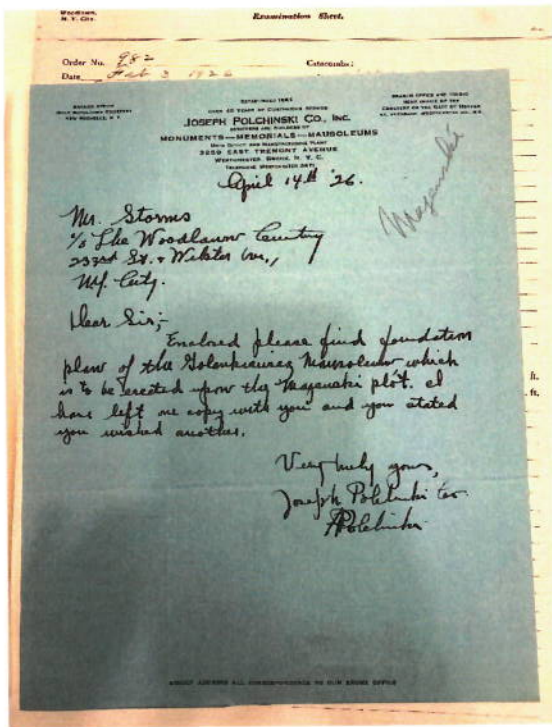 Woodlawn,
N. Y. City.
Examination Sheet.
Order No. 982
Catacombs:
Date Feb 3 1926
ESTABLISHED
OVER 40 YEARS OF CONTINUOUS SERVICE
JOSEPH POLCHINSKI CO., INC.
DESIGNERS AND BUILDERS OF
MONUMENTS—MEMORIALS—MAUSOLEUMS
MAIN OFFICE AND MANUFACTURING PLANT
3259 EAST TREMONT AVENUE
WESTCHESTER, BRONX, N. Y. C.
TELEPHONE WESTCHESTER
April 14th '26.
Mazenski
Mr. Storms
c/o The Woodlawn Cemetery
233rd St. & Webster Ave.,
N.Y. City.
Dear Sir;-
Enclosed please find foundation
plan of the Mausoleum which
is to be erected upon the Mazenski plot. I
have left one copy with you and you stated
you wished another.
Very truly yours,
Joseph Polchinski Co.
Polchinski
ft.
ft.
KINDLY ADDRESS ALL CORRESPONDENCE TO OUR BRONX OFFICE